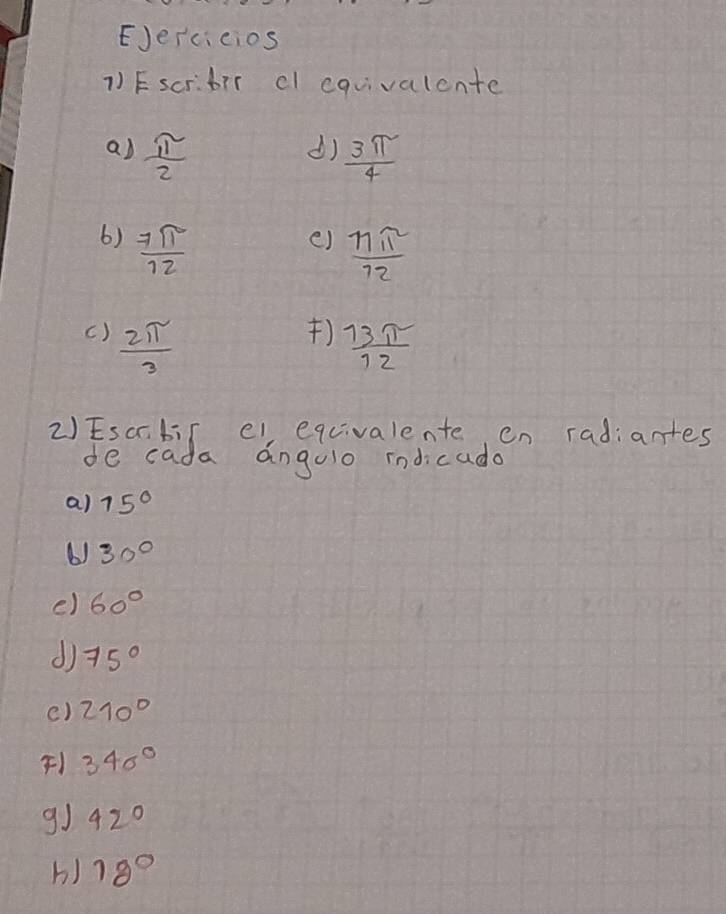 Ejercicios
1) Escribir el equivalente
a) π/2 d) 3π/4
b) 7π/12 e) 11π/12
c) 2π/3 f) 13π/12
2) Escribir el equivalente en radiantes
de cada ángulo indicado
a) 15°
b) 30°
c) 60°
d) 75°
e) 210°
f) 340°
g) 42°
h) 18°